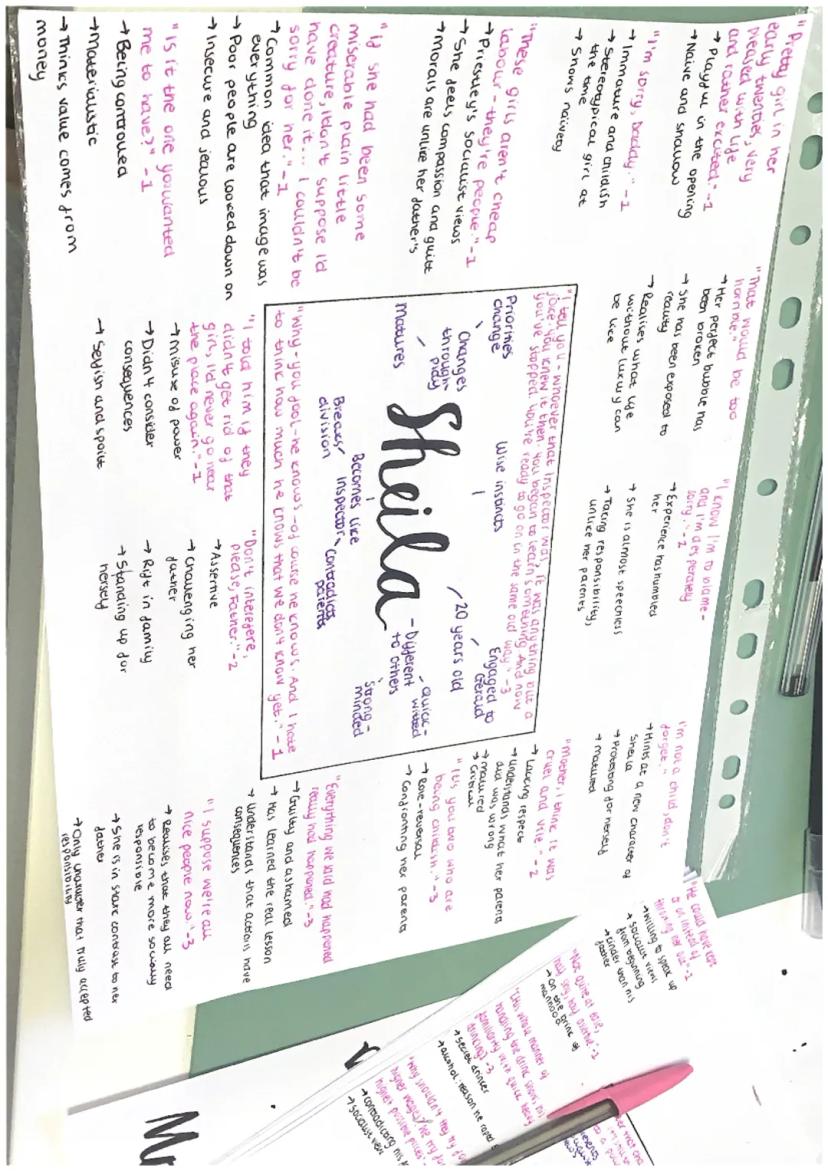 "Pretty girl in her
early twenties, very
pleased with life
and rather excited." -1
→ Playful in the opening
→ Naive and shallow
"I'm sorry, daddy." -1
→ Immature and childish
→ Stereotypical girl at
the time
→ Shows naivety
"These girls aren't cheap
labour - they're people." -1
→ Priestley's socialist views
→ She feels compassion and guilt
→ Morals are unlike her father's
"If she had been some
miserable plain little
creature, I don't suppose I'd
have done it... I couldn't be
sorry for her." -1
→ Common idea that image was
everything
→ Poor people are looked down on
→ Insecure and jealous
"Is it the one you wanted
me to have?" -1
→ Being controlled
→ Materialistic
→ Thinks value comes from
money
"That would be too
horrible."
→ Her perfect bubble has
been broken
→ She has been exposed to
reality
→ Realises what life
without luxury can
be like
"I know I'm to blame -
and I'm desperately
sorry." -2
→ Experience has humbled
her
→ She is almost speechless
→ Taking responsibility,
unlike her parents
I'm not a child, don't
forget."
→ Hints at a new character of
Sheila
→ Protesting for herself
→ Matured
"I tell you - whoever that Inspector was, it was anything but a
joke. You knew it then. You began to learn something. And now
you've stopped. You're ready to go on in the same old way." -3
Priorities
change
Changes
through
play
Matures
Wise instincts
Engaged to
Gerald
20 years old
Sheila
- Quick-
witted
- Different
to others
Strong-
minded
Becomes like
inspector
Contradicts
parents
Breaks
division
"Why - you fool - he knows - of course he knows. And I hate
to think how much he knows that we don't know yet." -1
"I told him if they
didn't get rid of that
girl, I'd never go near
the place again." -1
→ Misuse of power
→ Didn't consider
consequences
→ Selfish and spoilt
"Don't interfere,
please, Father." -2
→ Assertive
→ Challenging her
father
→ Rift in family
→ Standing up for
herself
"Mother, I think it was
cruel and vile." -2
→ Lacking respect
→ Understands what her parents
did was wrong
→ Matured
→ Critical
"It's you two who are
being childish." -3
→ Role-reversal
→ Confronting her parents
"Everything we said had happened
really had happened." -3
→ Guilty and ashamed
→ Has learned the real lesson
→ Understands that actions have
consequences
"I suppose we're all
nice people now." -3
→ Realises that they all need
to become more socially
responsible
→ She is in stark contrast to her
father
→ Only character that truly accepted
responsibility
"He could have kept
her on instead of
throwing her out" -1
→ Willing to speak up
→ Socialist views
from beginning
→ Kinder than his
father
"Not quite at ease,
half shy, half assertive" -1
→ On the brink of
manhood
(his whole manner of
handling the drink shows his
familiarity with quick heavy
drinking) -3
→ Secret drinker
→ alcohol: reason he rapes
"Why shouldn't they try for
higher wages? We try for
highest possible prices"
→ contradicting his
→ socialist view